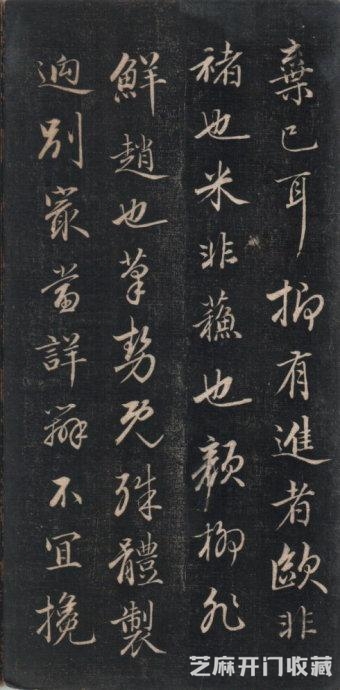 棄已耳抑有進者歐非
褚也米非蘓也顏柳非
鮮趙也筆勢既殊體製
迥别㝡當詳辯不宜攙
芝麻开门收藏